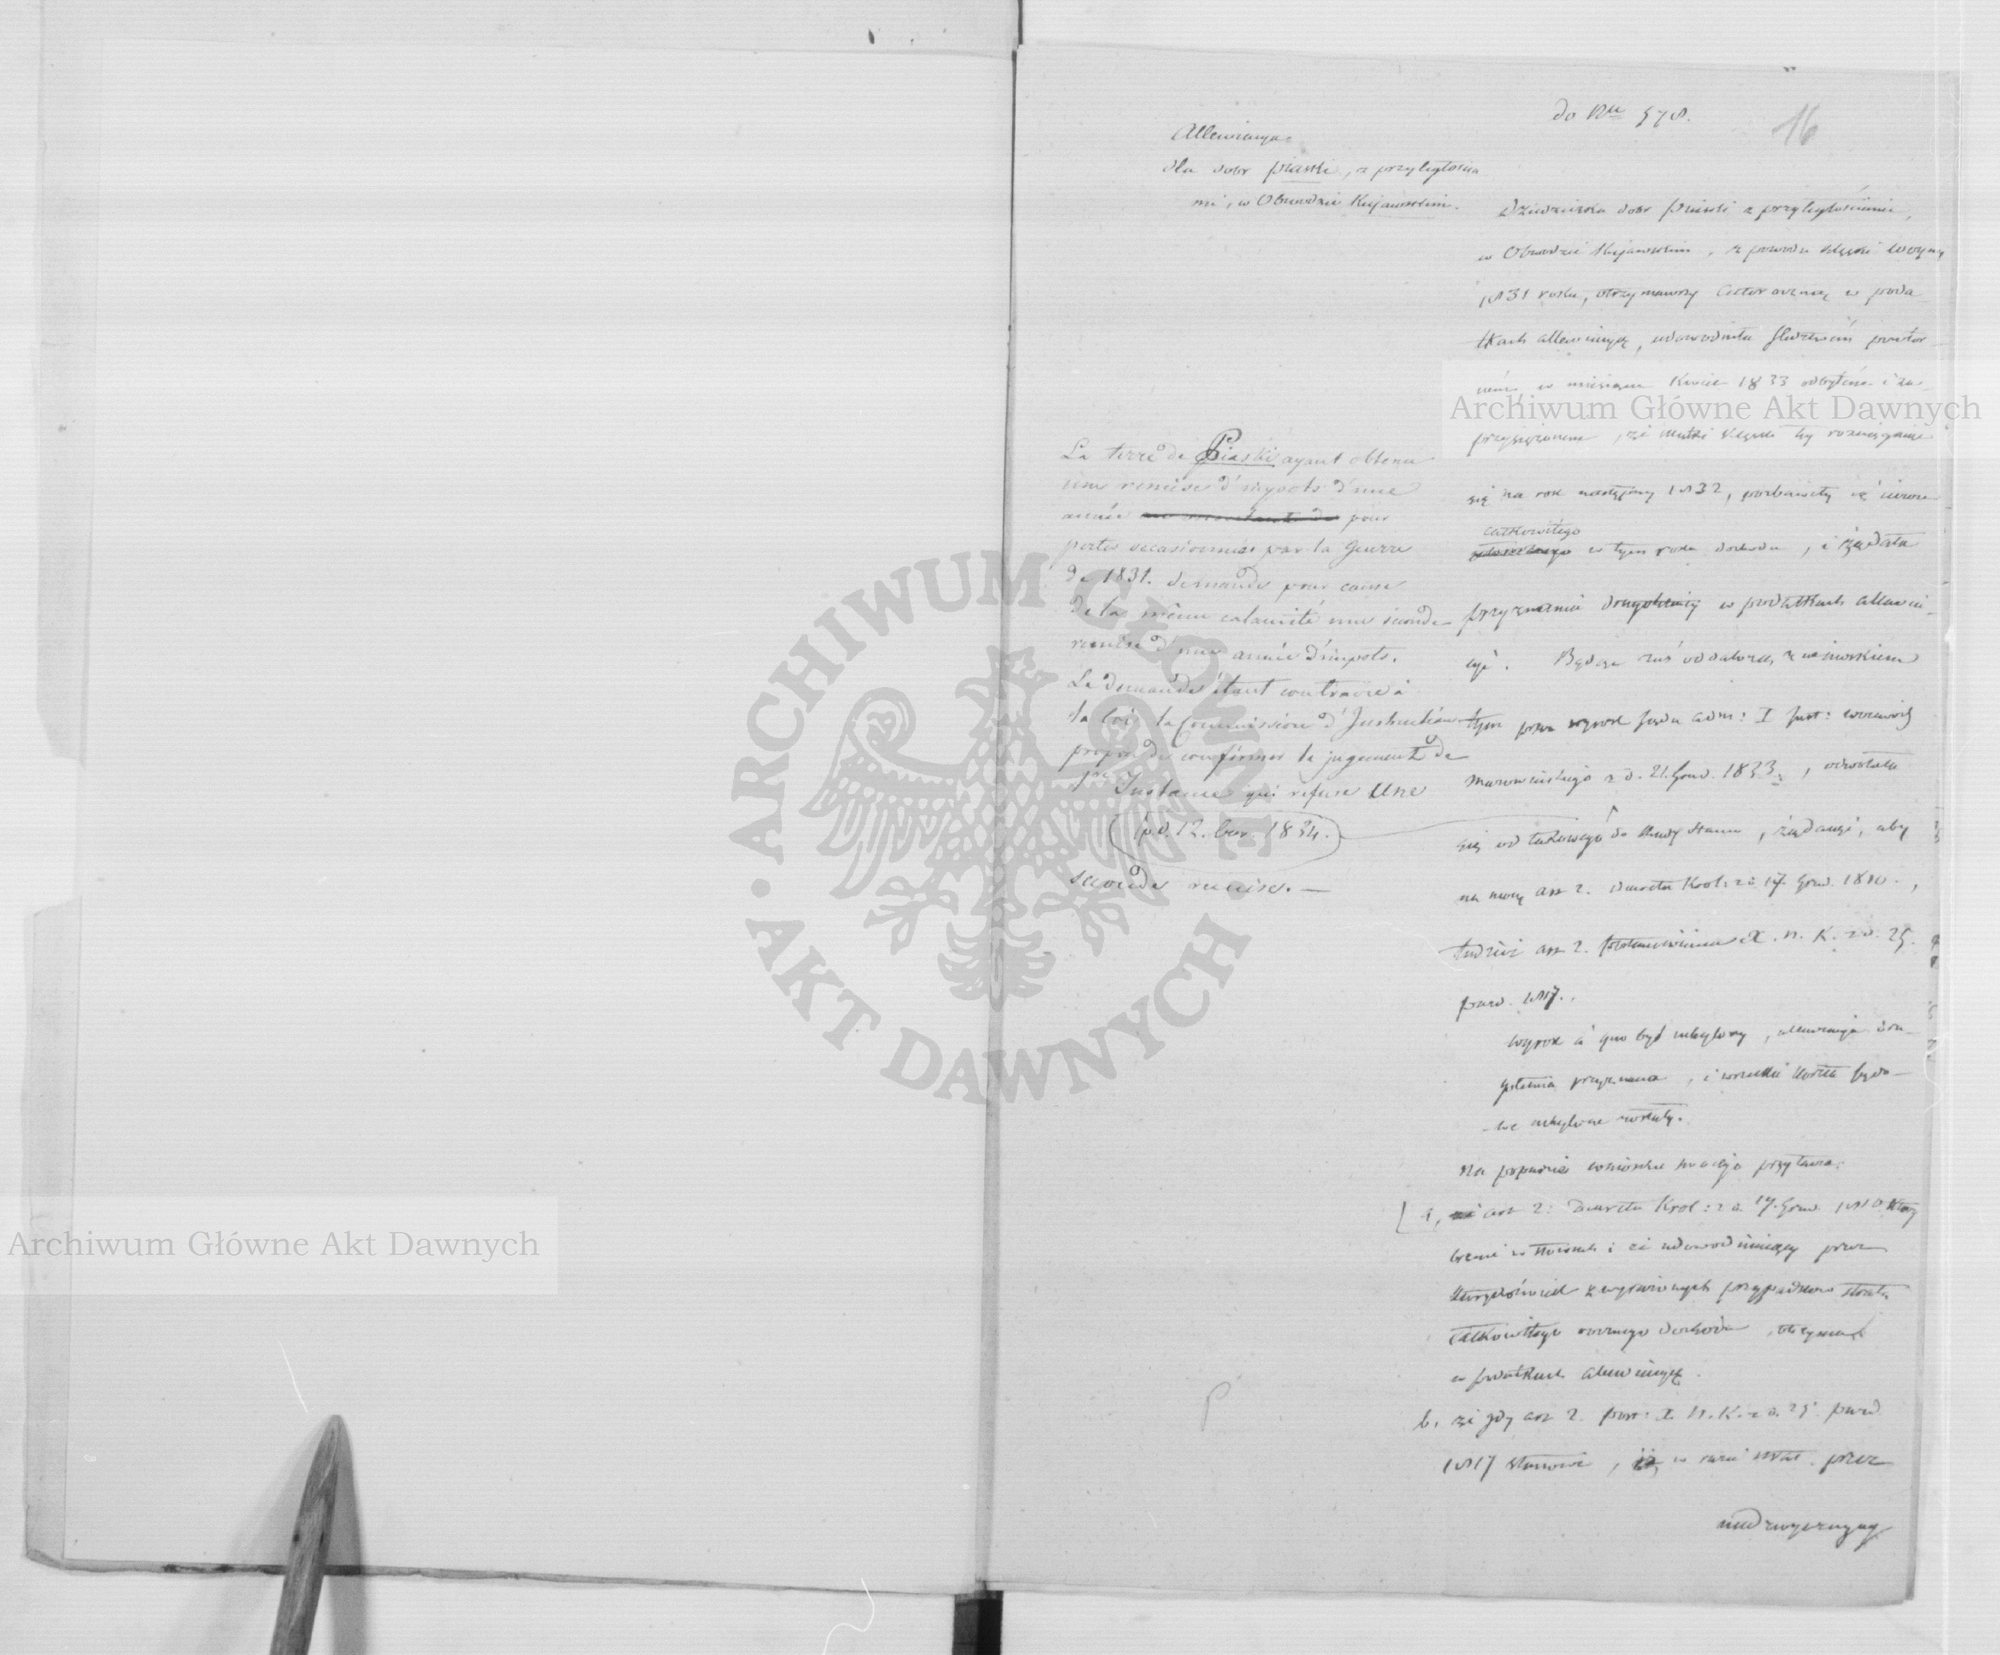 do Nru 578.
16
Allewiacya
dla dobr Piaski, z przyległościa
mi, w Obwodzie Kujawskim.
Dziedziczka dobr Piaski z przyległościami,
w Obwodzie Kujawskim, z powodu klęski woyny
1831 roku, otrzymawszy całoroczną w poda
tkach allewiacyą, udowodniła śledztwem powtor-
w miesiącu 1833 odbytém i za-
przysiężonem, że skutki klęski tey rozciągnęły
się na rok następny 1832, pozbawiły ią
całkowitego
w tym roku dochodu, i żądała
przyznania w podatkach allewia-
cyi. Będąc zaś oddaloną z wnioskiem
tym przez wyrok Sądu adm: I Inst: wwdztwa
Mazowieckiego z d. 21. Grud. 1833., odwołała
się od takowego do Rady Stanu, żądaiąc, aby
na mocy art 2. dekretu Krol: z d 17 Grud. 1810.,
tudzież art 2. Postanowienia X. N. K. z d. 25.
Pazd. 1817.
wyrok à quo był uchylony, allewiacya żą-
przyznana, i wszelkie koszta sądo-
-we uchylone zostały.
Na poparcie wniosku swoiego przytacza:
a, że art 2: Dekretu Krol: z d. 17. Grud 1810
brzmi w słowach: że udowodniaiący przez
którykolwiek z wyrażonych przypadków stratę
całkowitego rocznego dochodu, otrzyma
w podatkach allewiacyą.
b, że gdy art 2. post: X N. K. z d. 25 Pazd
1817 stanowi, iż w razie strat przez
nadzwyczayny
La terre de Piaski ayant obtenu
une remise d'impots d'une
année pour
pertes occasionnées par la guerre
de 1831. demande pour cause
de la même calamité une seconde
remise d'une année d'impots.
La demande étant contraire à
la loi, la Commission d'Instruction
propose de confirmer le jugement de
1re Instance qui refuse une
(p. d. 12. Czer. 1834.
seconde remise. —
Archiwum Główne Akt Dawnych
Archiwum Główne Akt Dawnych
ARCHIWUM GŁÓWNE AKT DAWNYCH